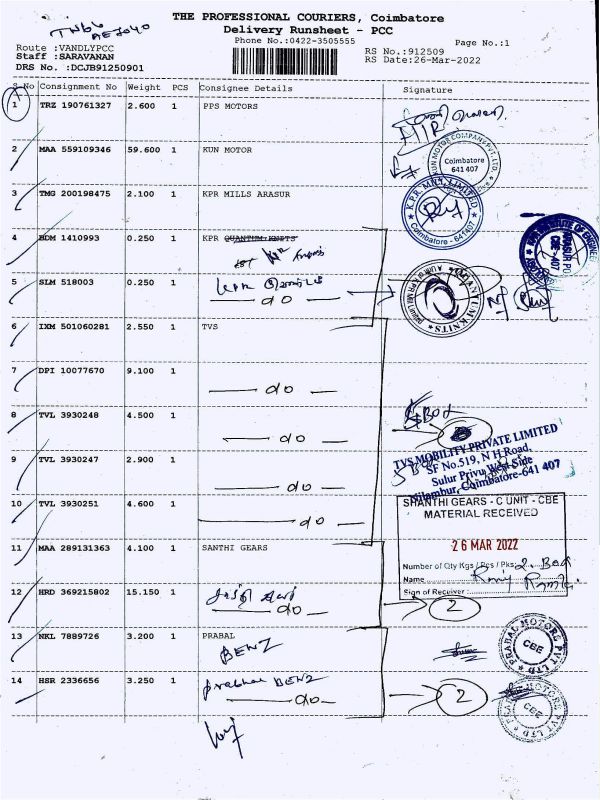 THE PROFESSIONAL COURIERS, Coimbatore
Delivery Runsheet - PCC
Phone No.:0422-3505555
Page No.:1
Route :VANDLYPCC
Staff :SARAVANAN
DRS No. :DCJB91250901
RS No.:912509
RS Date:26-Mar-2022
S No Consignment No Weight PCS Consignee Details Signature
1 TRZ 190761327 2.600 1 PPS MOTORS
2 MAA 559109346 59.600 1 KUN MOTOR
KUN MOTOR COMPANY PVT. LTD.
Coimbatore
641 407
3 TMG 200198475 2.100 1 KPR MILLS ARASUR
K.P.R. MILL LIMITED
Coimbatore - 641 407
4 BDM 1410993 0.250 1 KPR QUANTUM KNITS
5 SLM 518003 0.250 1
do
QUANTUM KNITS
6 IXM 501060281 2.550 1 TVS
7 DPI 10077670 9.100 1
do
8 TVL 3930248 4.500 1
do
9 TVL 3930247 2.900 1
do
TVS MOBILITY PRIVATE LIMITED
SF No.519, N H Road,
Sulur Privu West Side
Nilambur, Coimbatore-641 407
10 TVL 3930251 4.600 1
do
SHANTHI GEARS - C UNIT - CBE
MATERIAL RECEIVED
26 MAR 2022
11 MAA 289131363 4.100 1 SANTHI GEARS
Number of City Kgs / Pcs / Pks: 2
Name
Sign of Receiver :
12 HRD 369215802 15.150 1
do
2
13 NKL 7889726 3.200 1 PRABAL
BENZ
PRABAL MOTORS PVT LTD
CBE
14 HSR 2336656 3.250 1
Prabhal BENZ
do
2
PRABAL MOTORS PVT LTD
CBE